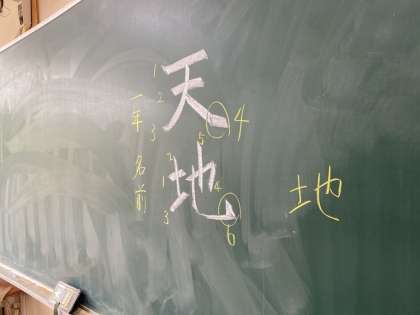 天地
1
2
3
4
2
1
3
5
4
6
一年 名前
地